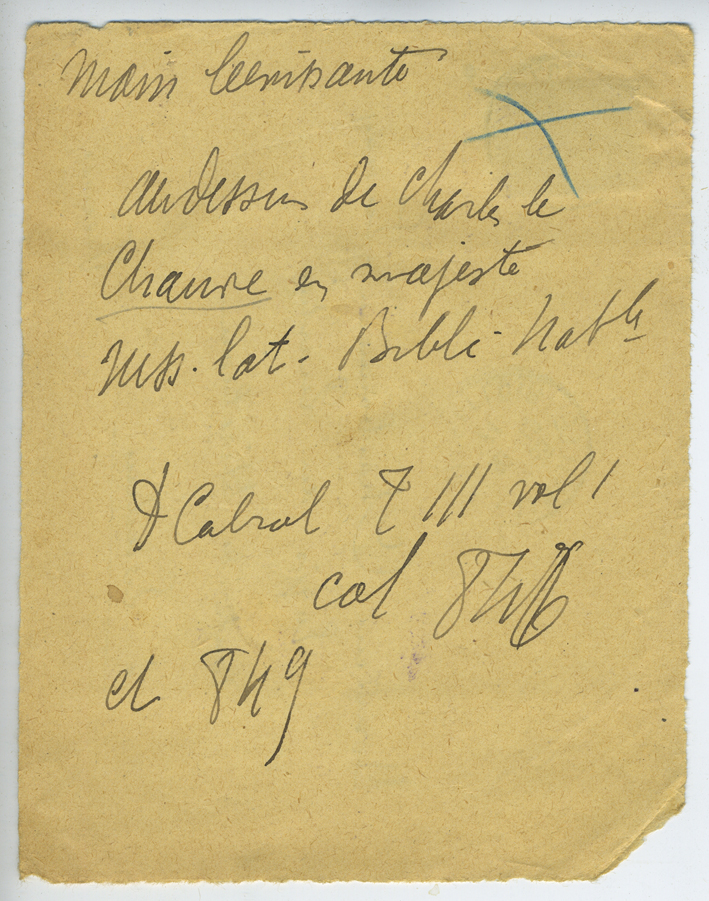 Main bénissante
au dessus de Charles le
Chauve en majesté
mss. lat. Bibli. Natle
D Cabrol T III vol 1
col 846
et 849